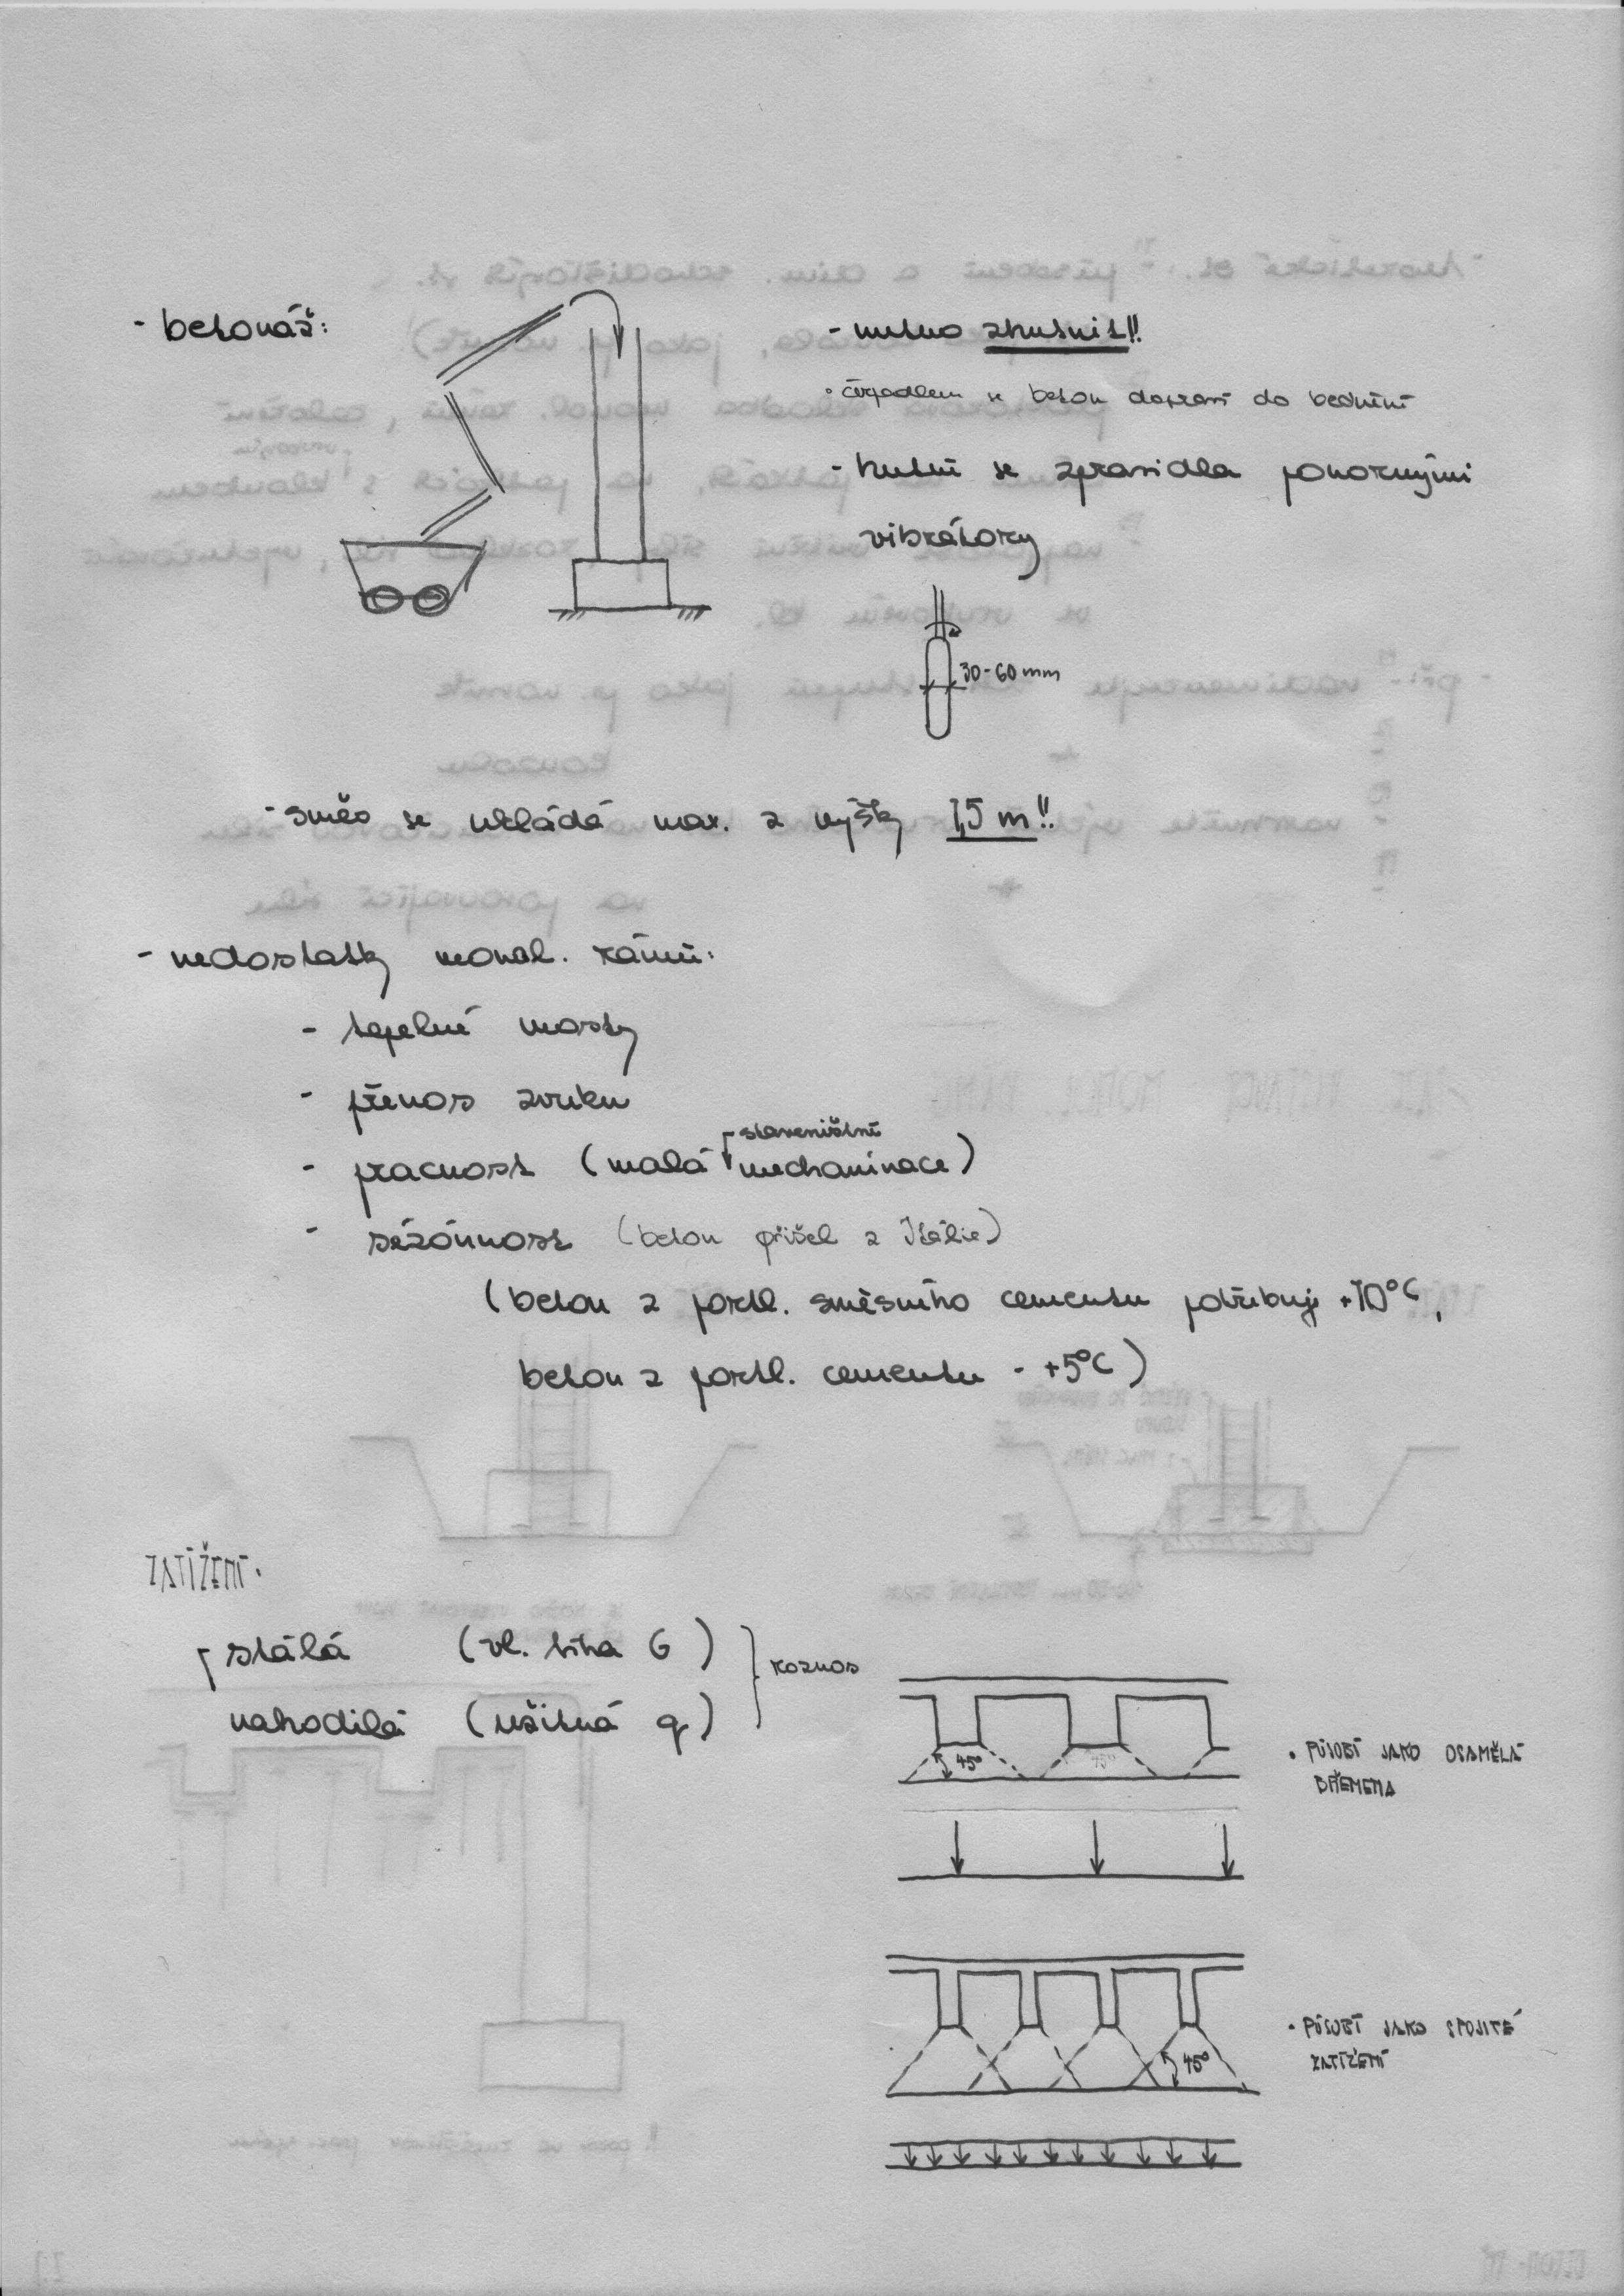 - betonáž:
- nutno zhutnit!!
• čerpadlem se beton dopraví do bednění
- hutní se zpravidla ponornými
vibrátory
30-60 mm
- směs se ukládá max. z výšky 1,5 m!!
- nedostatky monol. rámů:
- tepelné mosty
- přenos zvuku
staveništní
- pracnost (malá mechanizace)
- sézónnost (beton přišel z Itálie)
(beton z portl. směsného cementu potřebuje +10°C,
beton z portl. cementu - +5°C)
ZATÍŽENÍ.
stálá (vl. tíha G)
roznos
nahodilá (užitná q)
45° 45°
• PŮSOBÍ JAKO OSAMĚLÁ
BŘEMENA
45°
• PŮSOBÍ JAKO SPOJITÉ
ZATÍŽENÍ